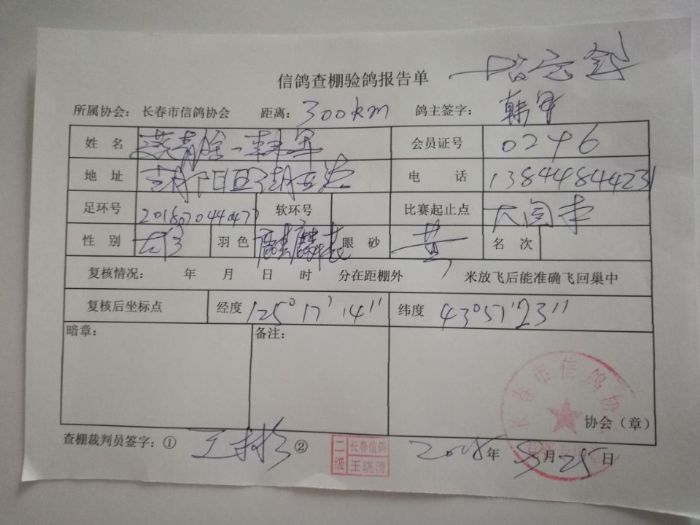 信鸽查棚验鸽报告单
所属协会: 长春市信鸽协会 距离: 300km 鸽主签字: 韩军
姓 名 燕青舍-韩军 会员证号 0246
地 址 朝阳区 电 话 13844844231
足环号 软环号 比赛起止点
性 别 羽色 麒麟花 眼 砂 黄 名 次
复核情况: 年 月 日 时 分在距棚外 米放飞后能准确飞回巢中
复核后坐标点 经度 125°17'14" 纬度 43°57'23"
暗章: 备注:
长春市信鸽协
协会（章）
查棚裁判员签字: ① 王彬 ② 二级 长春信鸽 2018年5月25日